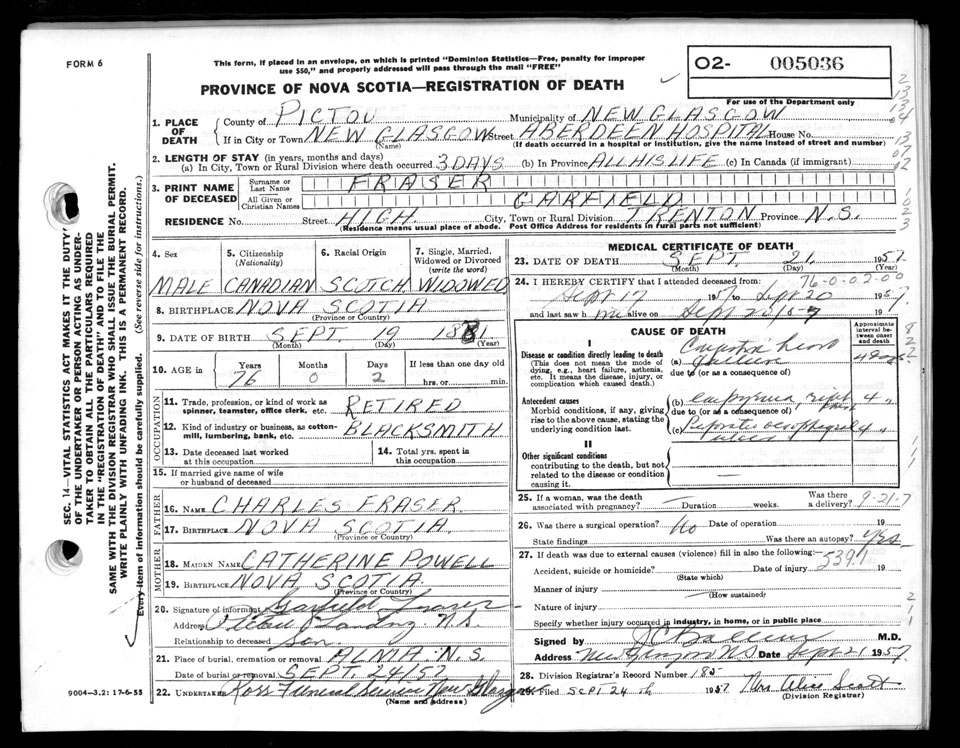 FORM 6
This form, if placed in an envelope, on which is printed "Dominion Statistics—Free, penalty for improper
use $50," and properly addressed will pass through the mail "FREE"
O2- 005036
PROVINCE OF NOVA SCOTIA—REGISTRATION OF DEATH
For use of the Department only
1. PLACE OF DEATH
County of PICTOU Municipality of NEW GLASGOW
If in City or Town NEW GLASGOW Street ABERDEEN HOSPITAL House No.
(Name) (If death occurred in a hospital or institution, give the name instead of street and number)
2. LENGTH OF STAY (in years, months and days)
(a) In City, Town or Rural Division where death occurred 3 DAYS (b) In Province ALL HIS LIFE (c) In Canada (if immigrant)
3. PRINT NAME OF DECEASED
Surname or Last Name FRASER
All Given or Christian Names GARFIELD
RESIDENCE No. Street HIGH. City, Town or Rural Division TRENTON Province N.S.
(Residence means usual place of abode. Post Office Address for residents in rural parts not sufficient)
4. Sex 5. Citizenship (Nationality) 6. Racial Origin 7. Single, Married, Widowed or Divorced (write the word)
MALE CANADIAN SCOTCH WIDOWED
8. BIRTHPLACE NOVA SCOTIA
(Province or Country)
9. DATE OF BIRTH SEPT. 19 1881
(Month) (Day) (Year)
10. AGE in Years Months Days If less than one day old
76 0 2 hrs. or min.
OCCUPATION
11. Trade, profession, or kind of work as spinner, teamster, office clerk, etc. RETIRED
12. Kind of industry or business, as cotton-mill, lumbering, bank, etc. BLACKSMITH
13. Date deceased last worked at this occupation
14. Total yrs. spent in this occupation
15. If married give name of wife or husband of deceased
FATHER
16. NAME CHARLES FRASER.
17. BIRTHPLACE NOVA SCOTIA.
(Province or Country)
MOTHER
18. MAIDEN NAME CATHERINE POWELL
19. BIRTHPLACE NOVA SCOTIA.
(Province or Country)
20. Signature of informant Garfield Fraser
Address Landing N.S.
Relationship to deceased Son.
21. Place of burial, cremation or removal ALMA N.S.
Date of burial or removal SEPT. 24/57
22. UNDERTAKER Ross Funeral Service New Glasgow
(Name and address)
MEDICAL CERTIFICATE OF DEATH
23. DATE OF DEATH SEPT. 21, 1957
(Month) (Day) (Year)
76-0-02-00
24. I HEREBY CERTIFY that I attended deceased from:
Sept 17 1957 to Sept 20 1957
and last saw h im alive on Sept 20/57
CAUSE OF DEATH
Approximate interval between onset and death
I
Disease or condition directly leading to death
(This does not mean the mode of dying, e.g., heart failure, asthenia, etc. It means the disease, injury, or complication which caused death.)
(a) heart failure
due to (or as a consequence of)
Antecedent causes
Morbid conditions, if any, giving rise to the above cause, stating the underlying condition last.
(b) empyema, right 4 "
due to (or as a consequence of)
(c) oesophageal 4 "
ulcer
II
Other significant conditions
contributing to the death, but not related to the disease or condition causing it.
25. If a woman, was the death associated with pregnancy? Duration weeks. Was there a delivery? 9-21-7
26. Was there a surgical operation? No Date of operation 19
State findings Was there an autopsy? Yes
27. If death was due to external causes (violence) fill in also the following:
539.1
Accident, suicide or homicide? Date of injury 19
(State which)
Manner of injury
(How sustained)
Nature of injury
Specify whether injury occurred in industry, in home, or in public place
Signed by M.D.
Address New Glasgow NS Date Sept 21 1957
28. Division Registrar's Record Number 185
29. Filed SEPT 24 th 1957 Mrs Alice Scott
(Division Registrar)
9004—3.2: 17-6-55
SEC. 14—VITAL STATISTICS ACT MAKES IT THE DUTY OF THE UNDERTAKER OR PERSON ACTING AS UNDERTAKER TO OBTAIN ALL THE PARTICULARS REQUIRED IN THE "REGISTRATION OF DEATH" AND TO FILE THE SAME WITH THE DIVISION REGISTRAR WHO SHALL ISSUE THE BURIAL PERMIT.
WRITE PLAINLY WITH UNFADING INK. THIS IS A PERMANENT RECORD.
Every item of information should be carefully supplied. (See reverse side for instructions.)